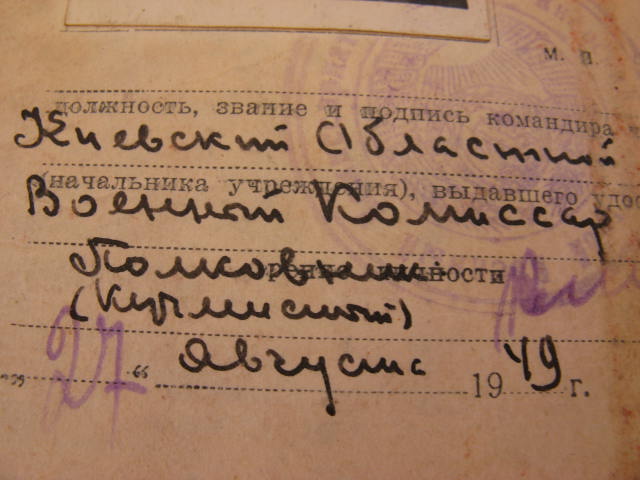 М. П.
должность, звание и подпись командира
Киевский Областной
(начальника учреждения), выдавшего удос
Военный Комиссар
Полковник личности
„27“ Августа 1949 г.